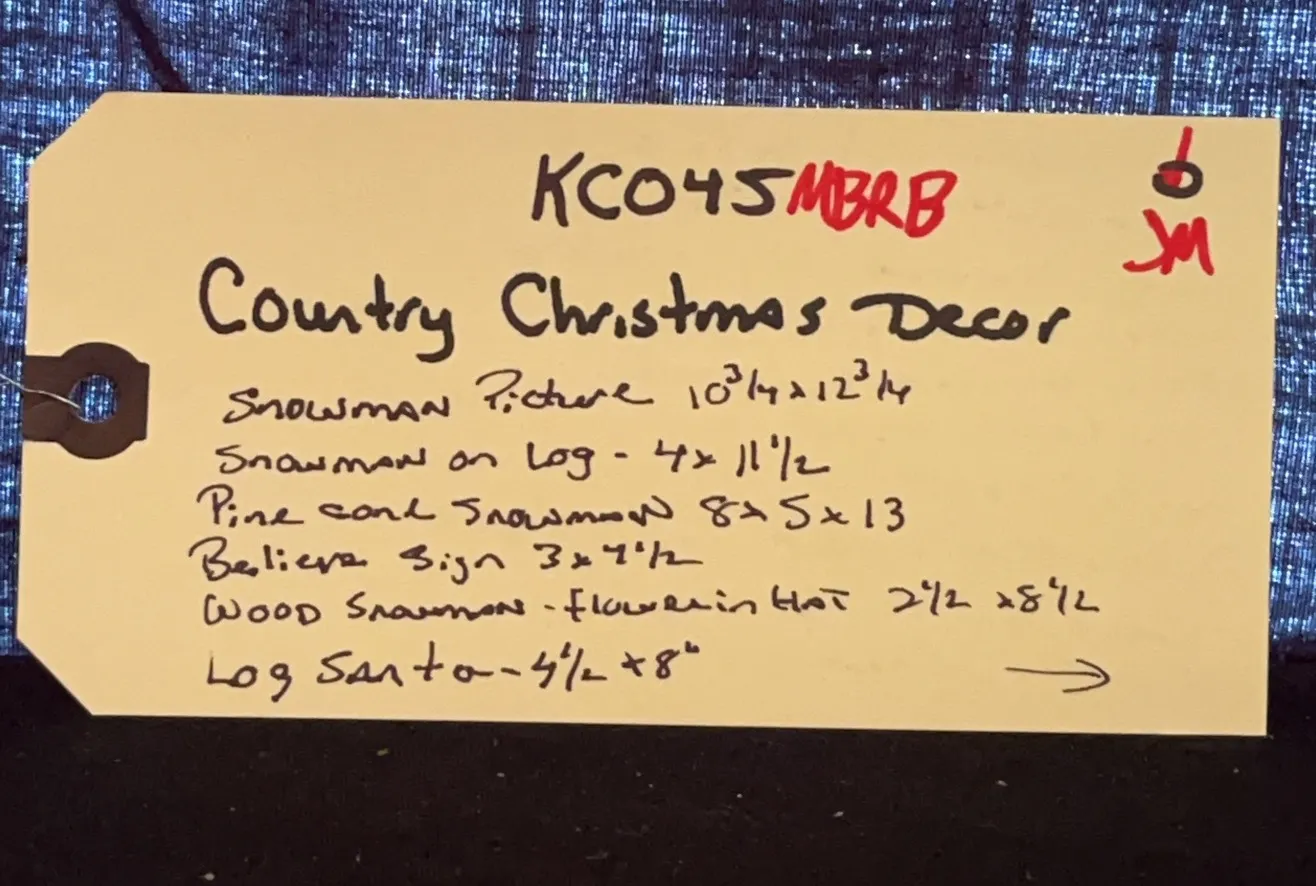 KC045MBRB
JM
Country Christmas Decor
Snowman Picture 10 3/4 x 12 3/4
Snowman on Log - 4 x 11 1/2
Pine cone Snowman 8 x 5 x 13
Believe Sign 3 x 7 1/2
Wood Snowman - flower in Hat 2 1/2 x 8 1/2
Log Santa - 4 1/2 x 8"